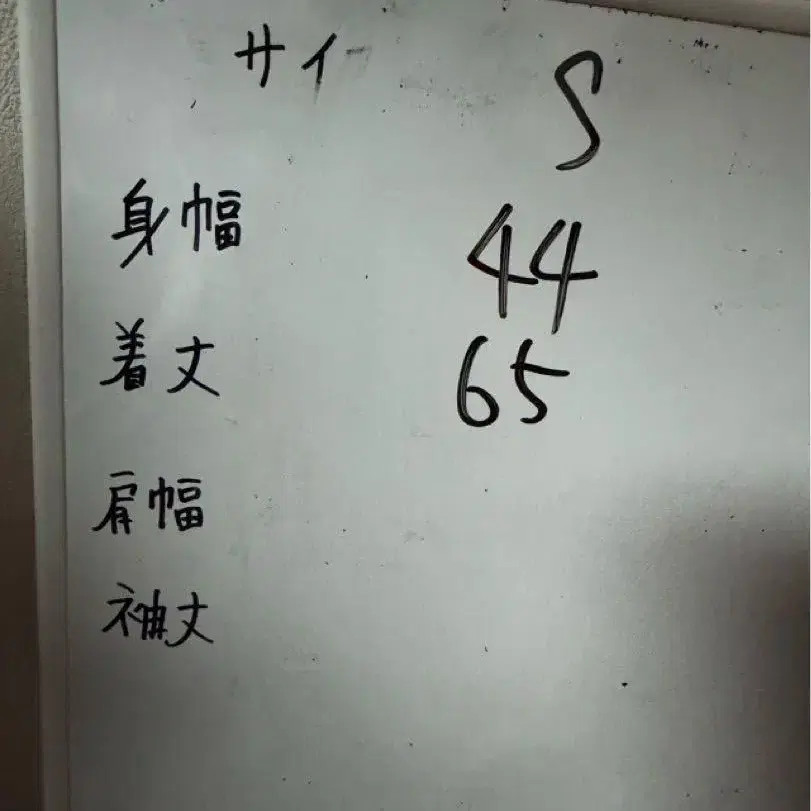 サイ S
身幅 44
着丈 65
肩幅
袖丈